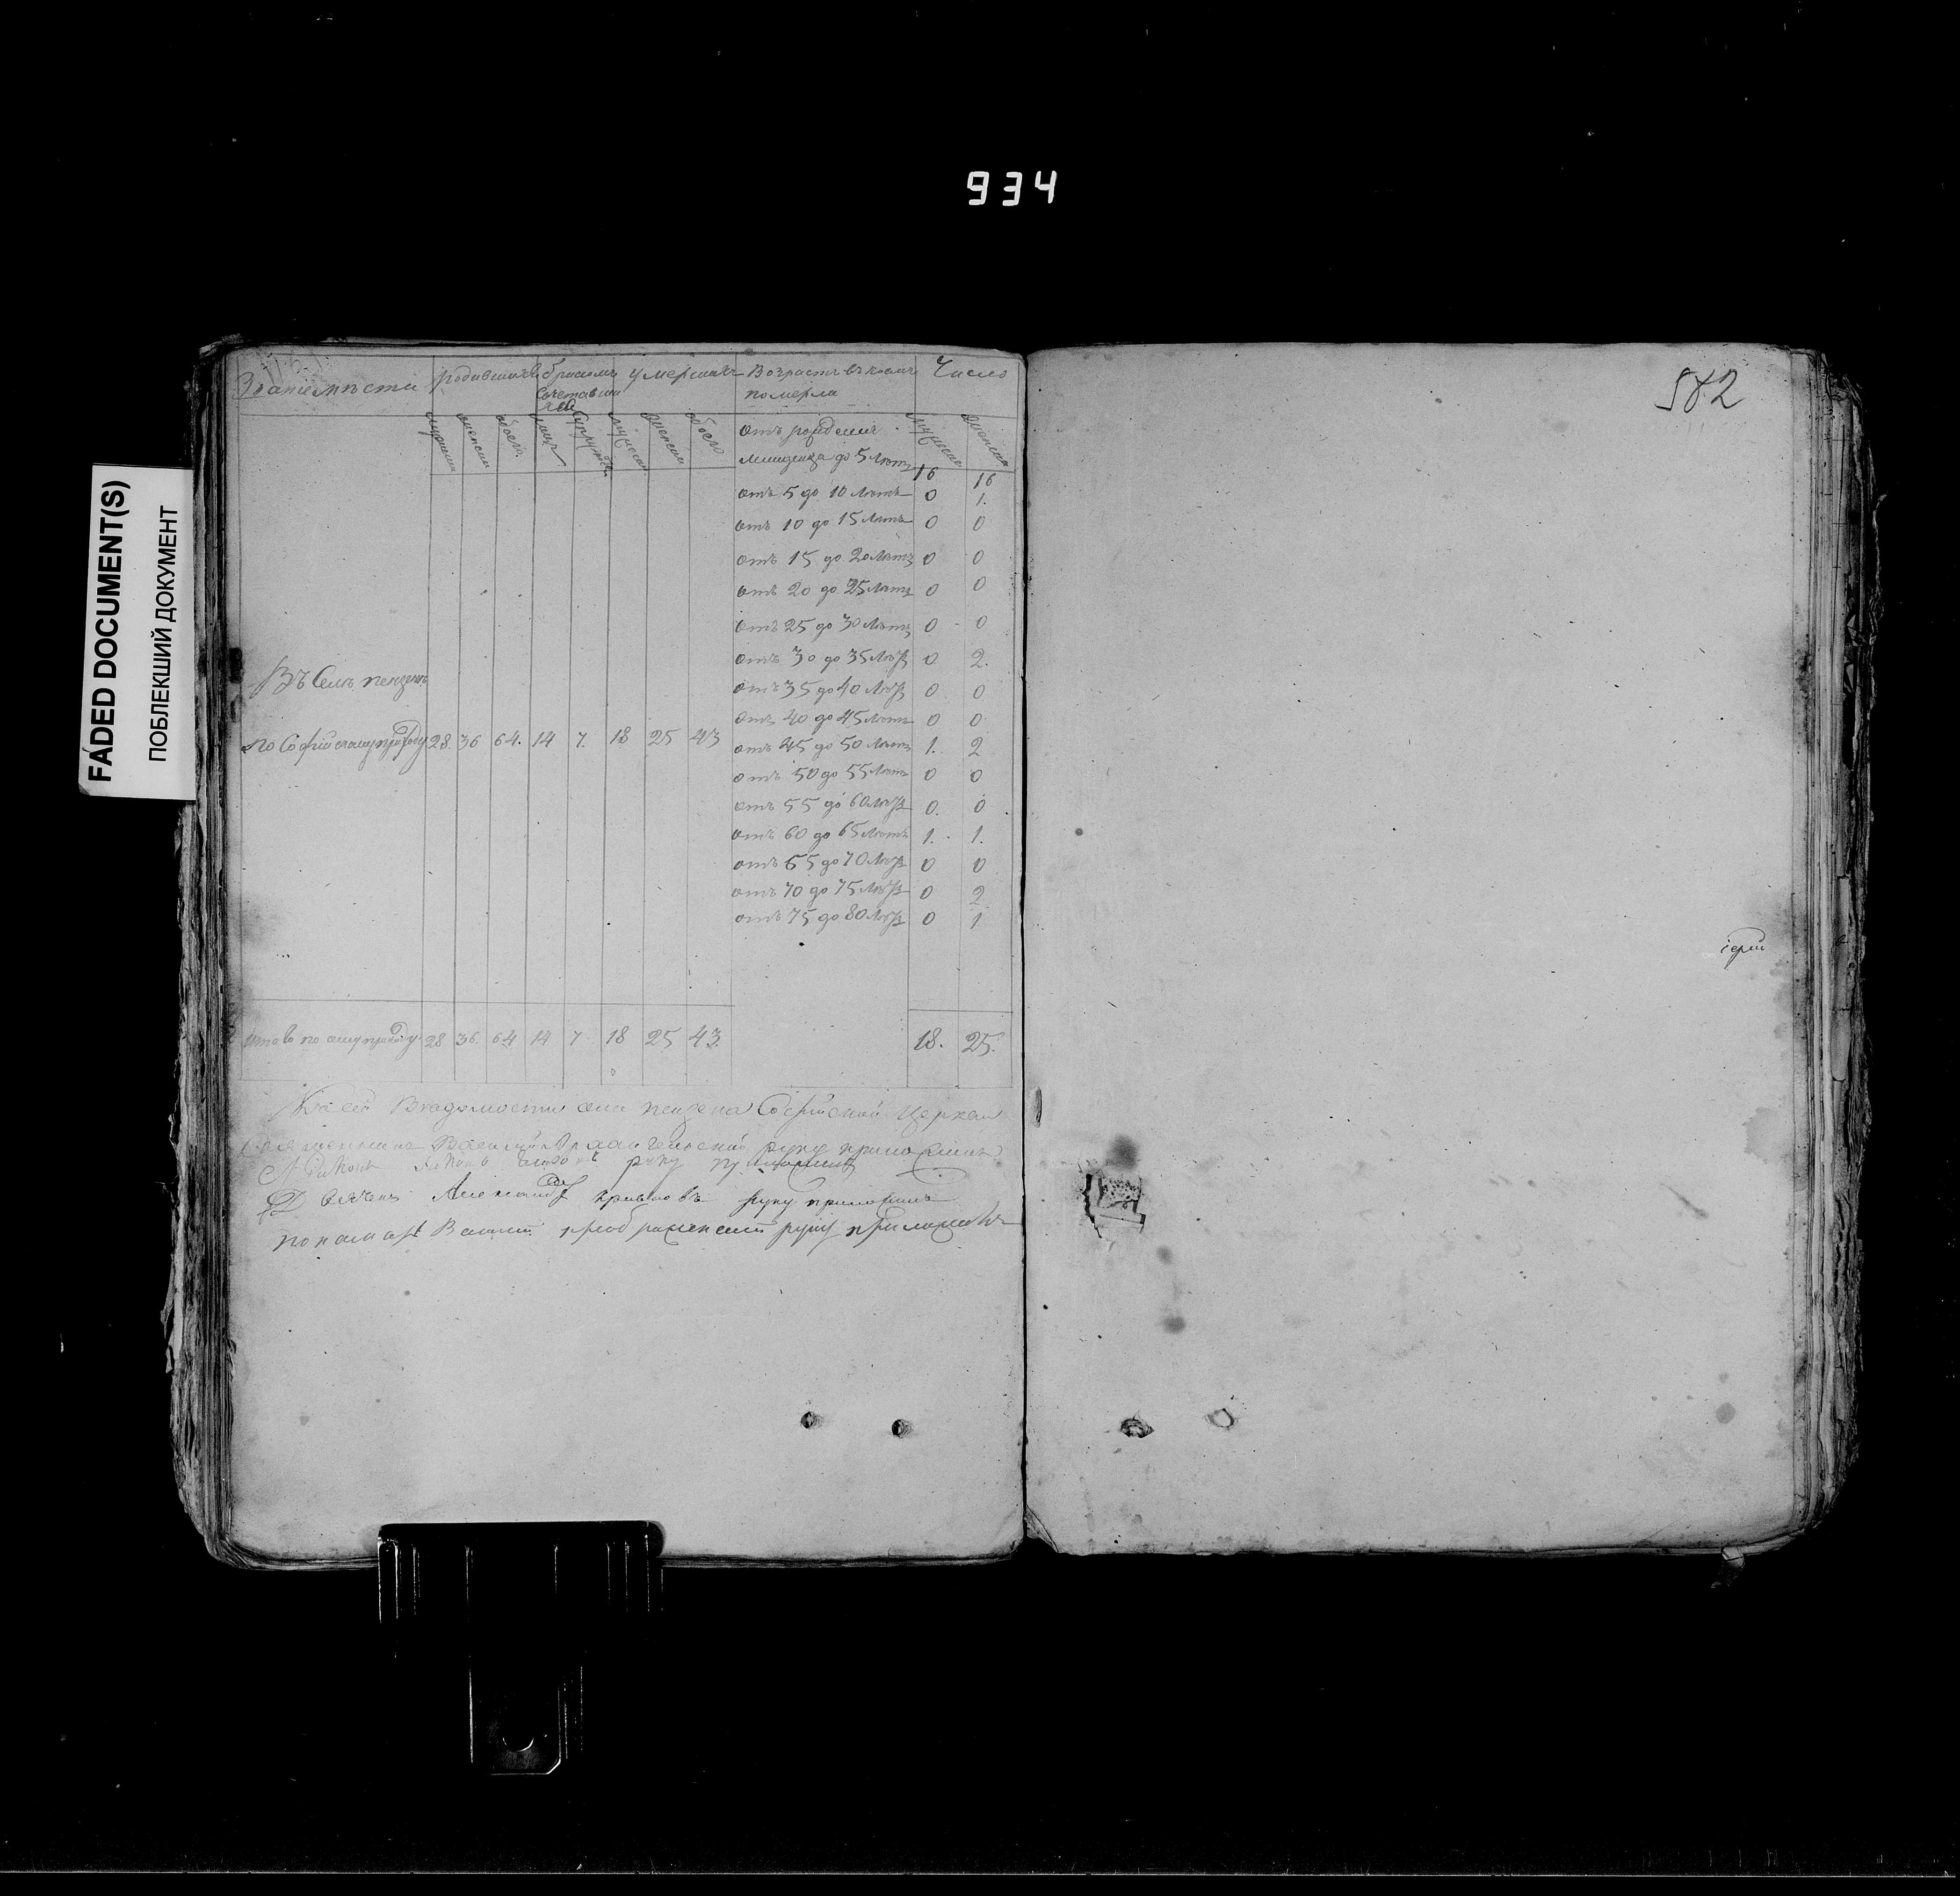 934
FADED DOCUMENT(S)
ПОБЛЕКШИЙ ДОКУМЕНТ
Званіе мѣсти родившихъ бракомъ сочетавши умершихъ Возрастъ въ коемъ померли Число
мужески женски обоего лицъ Супружествъ мужески женски обоего мужески женски
отъ рожденія
младенца до 5 лѣтъ 16 16
отъ 5 до 10 лѣтъ 0 1.
отъ 10 до 15 лѣтъ 0 0
отъ 15 до 20 лѣтъ 0 0
отъ 20 до 25 лѣтъ 0 0
отъ 25 до 30 лѣтъ 0 0
отъ 30 до 35 лѣтъ 0 2.
Въ Селѣ
отъ 35 до 40 лѣтъ 0 0
отъ 40 до 45 лѣтъ 0 0
по Софійскому приходу 28. 36 64. 14 7. 18 25 43
отъ 45 до 50 лѣтъ 1. 2
отъ 50 до 55 лѣтъ 0 0
отъ 55 до 60 лѣтъ 0. 0
отъ 60 до 65 лѣтъ 1. 1.
отъ 65 до 70 лѣтъ 0 0
отъ 70 до 75 лѣтъ 0 2
отъ 75 до 80 лѣтъ 0 1
Итого по оному приходу 28 36. 64 14 7 18 25 43. 18. 25.
Къ сей Вѣдомости села Софійской Церкви
Священникъ Василій Архангельскій руку приложилъ
руку приложилъ
Дьячекъ Александръ руку приложилъ
пономарь Преображенскій руку приложилъ
582
іерей